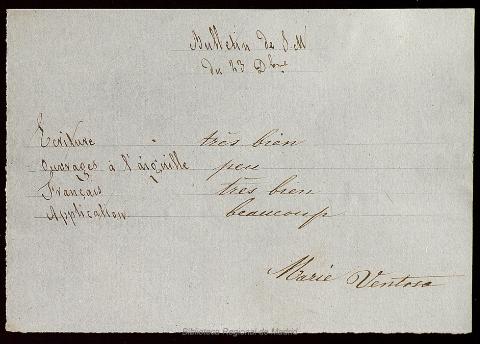 Bulletin de S M
du 23 Dbre
Ecriture très bien
ouvrages à l'aiguille peu
Français très bien
Application beaucoup
Marie Ventosa
Biblioteca Regional de Madrid